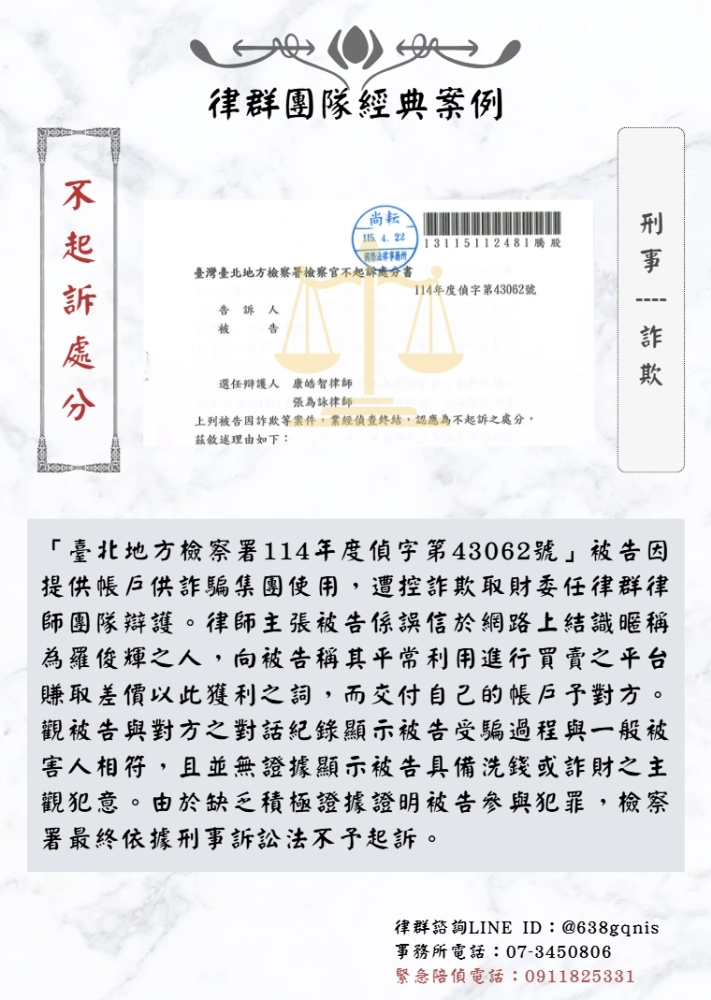 律群團隊經典案例
不起訴處分
刑事----詐欺
尚耘
115. 4. 22
國際法律事務所
13115112481騰股
臺灣臺北地方檢察署檢察官不起訴處分書
114年度偵字第43062號
告訴人
被告
選任辯護人 康皓智律師
張為詠律師
上列被告因詐欺等案件，業經偵查終結，認應為不起訴之處分，
茲敘述理由如下：
「臺北地方檢察署114年度偵字第43062號」被告因
提供帳戶供詐騙集團使用，遭控詐欺取財委任律群律
師團隊辯護。律師主張被告係誤信於網路上結識暱稱
為羅俊輝之人，向被告稱其平常利用進行買賣之平台
賺取差價以此獲利之詞，而交付自己的帳戶予對方。
觀被告與對方之對話紀錄顯示被告受騙過程與一般被
害人相符，且並無證據顯示被告具備洗錢或詐財之主
觀犯意。由於缺乏積極證據證明被告參與犯罪，檢察
署最終依據刑事訴訟法不予起訴。
律群諮詢LINE ID：@638gqnis
事務所電話：07-3450806
緊急陪偵電話：0911825331